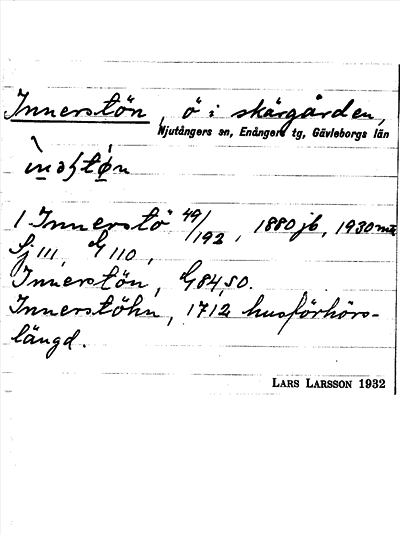 Innerstön, ö i skärgården,
Njutångers sn, Enångers tg, Gävleborgs län
1 Innerstö 49/192, 1880 jb, 1930 mtl
Sj 111, G 110,
Innerstön, G 84, 50.
Innerstöhn, 1712 husförhörs-
längd.
LARS LARSSON 1932